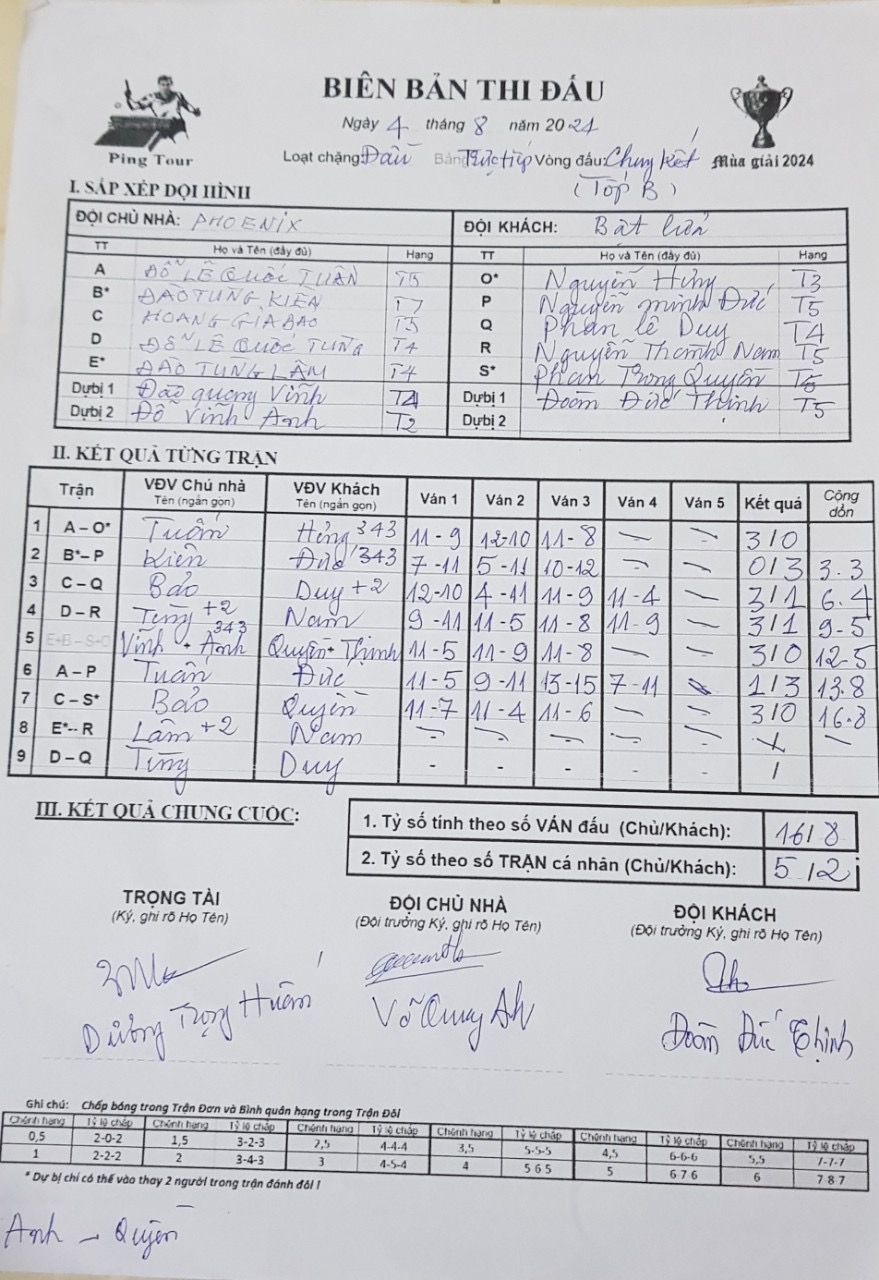 BIÊN BẢN THI ĐẤU
Ngày 4 tháng 8 năm 2024
Ping Tour
Loạt chặng: Đấu Bảng Trực tiếp Vòng đấu: Chung kết
Mùa giải 2024
(TOP B)
I. SẮP XẾP ĐỘI HÌNH
ĐỘI CHỦ NHÀ: PHOENIX ĐỘI KHÁCH: Bát
TT Họ và Tên (đầy đủ) Hạng TT Họ và Tên (đầy đủ) Hạng
A ĐỖ LÊ QUỐC TUẤN T5 O* Nguyễn Hưng T3
B* ĐÀO TÙNG KIÊN T7 P Nguyễn minh Đức T5
C HOÀNG GIA BẢO Q Phan lê Duy T4
D ĐỖ LÊ QUỐC TÙNG T4 R Nguyễn Thành Nam T5
E* ĐÀO TÙNG LÂM T4 S* Phan Trọng Quyền
Dự bị 1 Đào quang Vinh T4 Dự bị 1 Đoàn Đức Thịnh T5
Dự bị 2 Đỗ Vinh Anh T2 Dự bị 2
II. KẾT QUẢ TỪNG TRẬN
Trận VĐV Chủ nhà Tên (ngắn gọn) VĐV Khách Tên (ngắn gọn) Ván 1 Ván 2 Ván 3 Ván 4 Ván 5 Kết quả Cộng dồn
1 A – O* Tuấn Hưng 343 11 - 9 12-10 11 - 8 — — 3/0
2 B* – P Kiên Đức 343 7 - 11 5 - 11 10 - 12 — — 0/3 3.3
3 C – Q Bảo Duy +2 12-10 4 - 11 11 - 9 11 - 4 — 3/1 6.4
4 D – R Tùng +2 Nam 9 - 11 11 - 5 11 - 8 11 - 9 — 3/1 9-5
5 E+B – S+O Vinh + Anh 343 Quyền + Thịnh 11 - 5 11 - 9 11 - 8 — — 3/0 12-5
6 A – P Tuấn Đức 11 - 5 9 - 11 13 - 15 7 - 11 1/3 13.8
7 C – S* Bảo Quyền 11-7 11 - 4 11 - 6 — — 3/0 16.8
8 E* -- R Lâm +2 Nam — — — — — —
9 D – Q Tùng Duy - - - - - /
III. KẾT QUẢ CHUNG CUỘC:
1. Tỷ số tính theo số VÁN đấu (Chủ/Khách): 16/8
2. Tỷ số theo số TRẬN cá nhân (Chủ/Khách): 5/2
TRỌNG TÀI ĐỘI CHỦ NHÀ ĐỘI KHÁCH
(Ký, ghi rõ Họ Tên) (Đội trưởng Ký, ghi rõ Họ Tên) (Đội trưởng Ký, ghi rõ Họ Tên)
Dương Trọng Huấn Võ Quang Anh Đoàn Đức Thịnh
Ghi chú: Chấp bóng trong Trận Đơn và Bình quân hạng trong Trận Đôi
Chênh hạng Tỷ lệ chấp Chênh hạng Tỷ lệ chấp Chênh hạng Tỷ lệ chấp Chênh hạng Tỷ lệ chấp Chênh hạng Tỷ lệ chấp Chênh hạng Tỷ lệ chấp
0,5 2-0-2 1,5 3-2-3 2,5 4-4-4 3,5 5-5-5 4,5 6-6-6 5,5 7-7-7
1 2-2-2 2 3-4-3 3 4-5-4 4 5 6 5 5 6 7 6 6 7 8 7
* Dự bị chỉ có thể vào thay 2 người trong trận đánh đôi !
Anh - Quyền